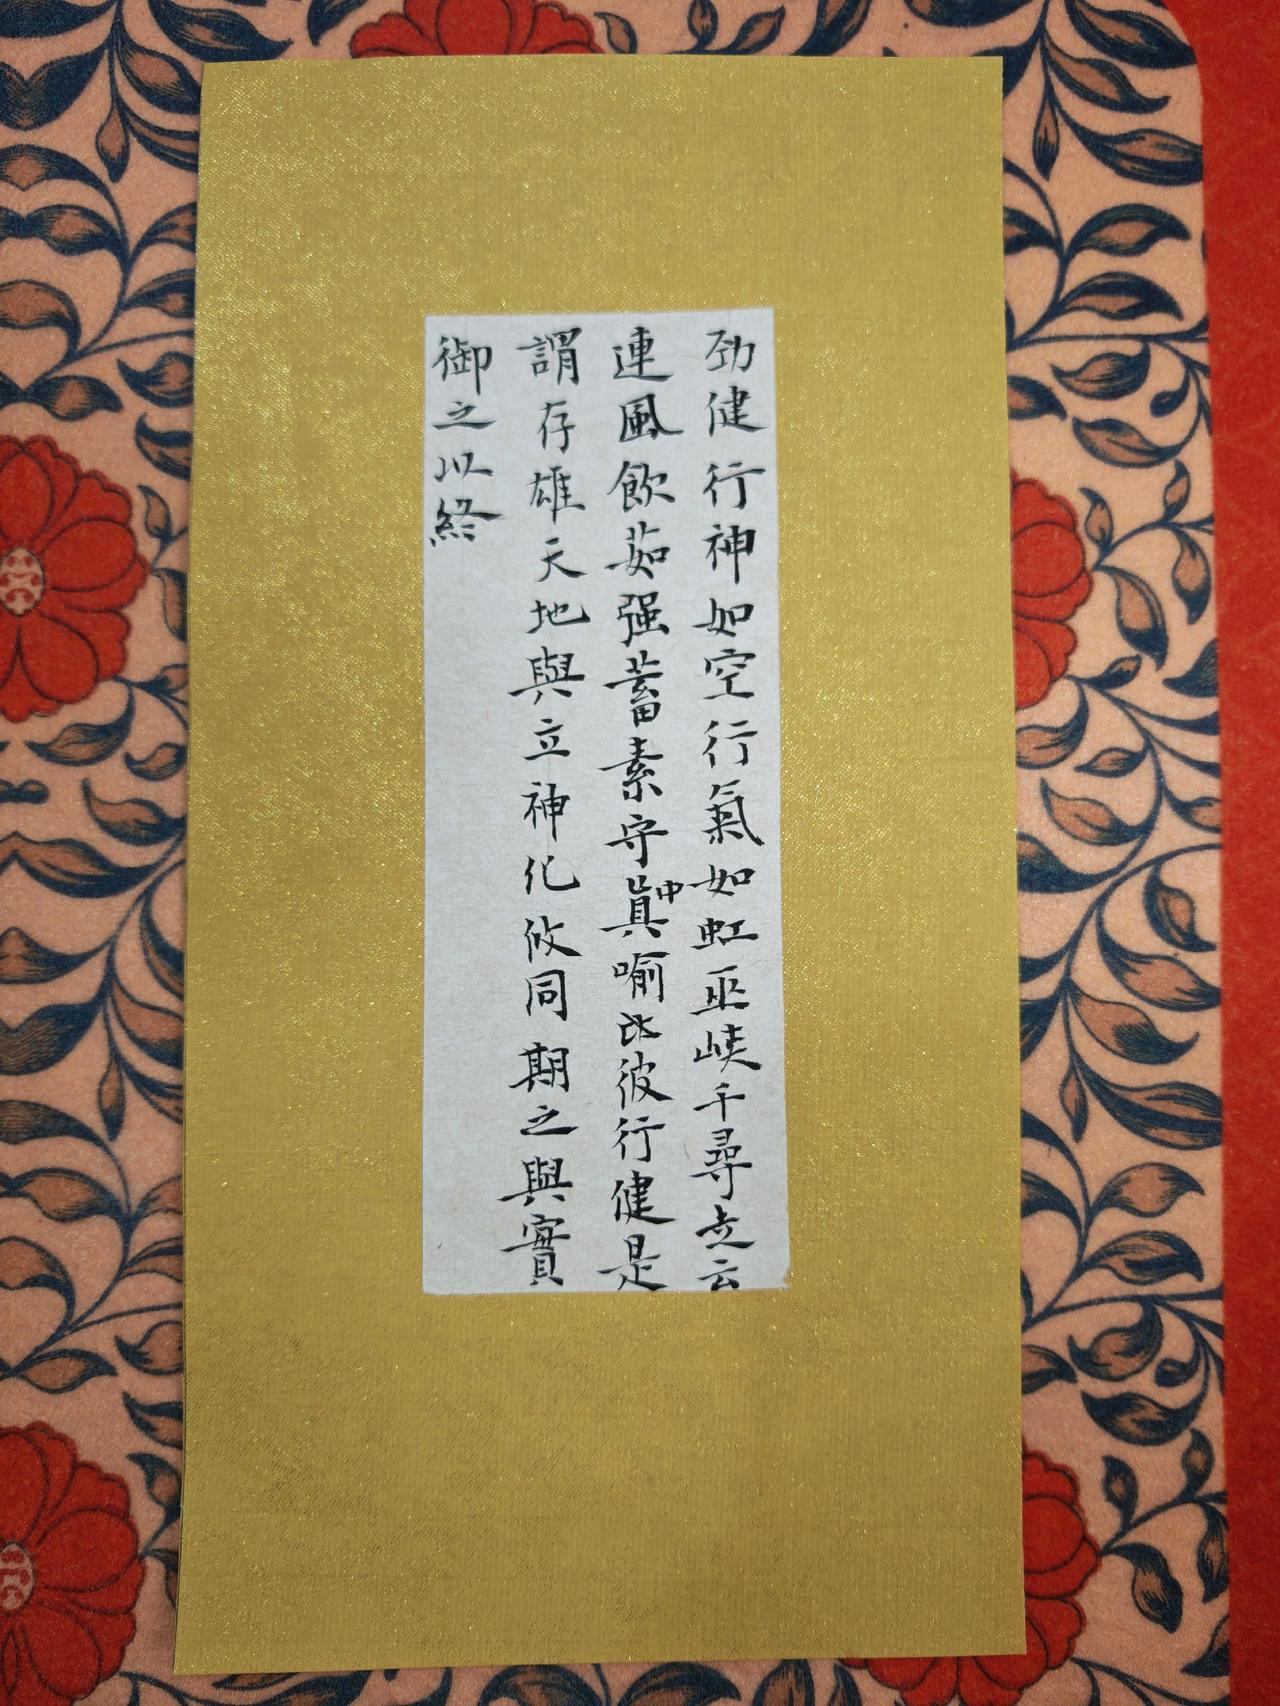 劲健行神如空行氣如虹巫峽千尋走云
連風飲茹强蓄素守眞中喻比彼行健是
謂存雄天地與立神化攸同期之與實
御之以終